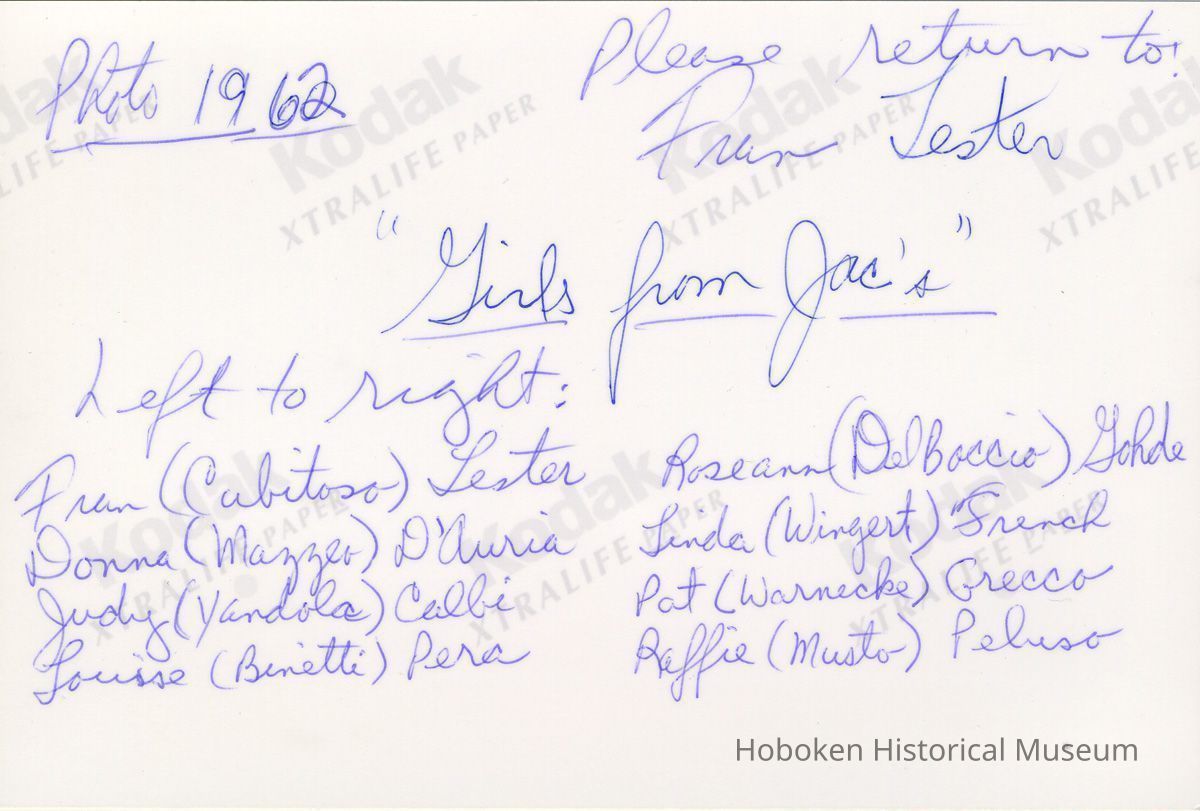 Photo 1962
Please return to:
Fran Lester
"Girls from Jac's"
Left to right:
Fran (Cubitoso) Lester
Donna (Mazzeo) D'Auria
Judy (Yandola) Calbi
Louisse (Binetti) Pera
Roseann (DelBoccio) Gohde
Linda (Wingert) French
Pat (Warnecke) Grecco
Raffie (Musto) Peluso
Kodak
XTRALIFE PAPER
Hoboken Historical Museum